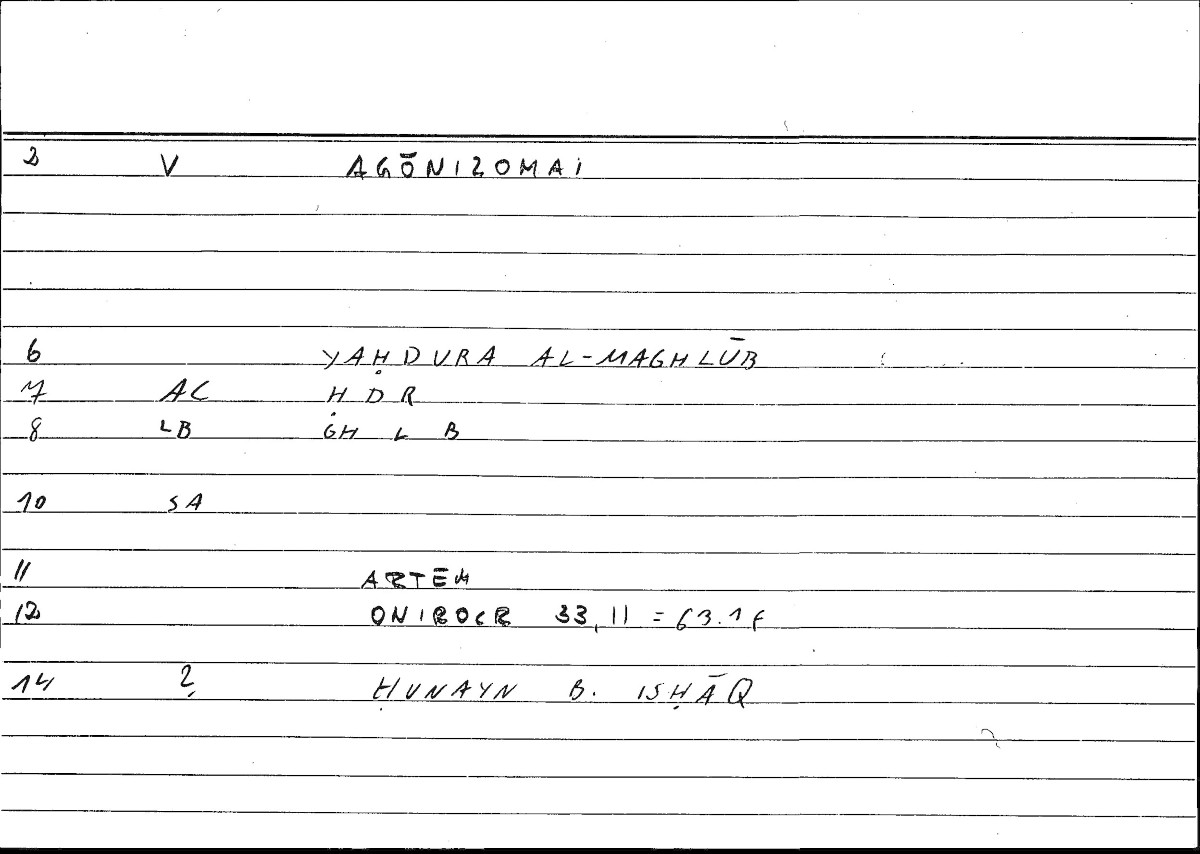 2 V AGŌNIZOMAI
6 YAḤDURA AL-MAGHLŪB
7 AC Ḥ D R
8 LB GH L B
10 SA
11 ARTĒM
12 ONIROCR 33,11 = 63.1f
14 ? ḤUNAYN B. ISḤĀQ